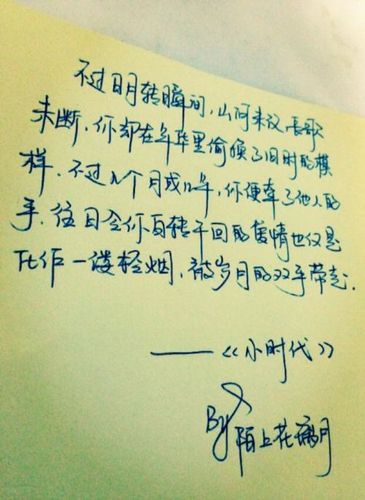 不过日月转瞬间，山河未改长歌
未断，你却在年华里偷换了旧时的模
样，不过几个月或几年，你便牵了他人的
手，往日令你百转千回的旧情也仅是
化作一缕轻烟，被岁月的双手带走.
——《小时代》
By 陌上花满月